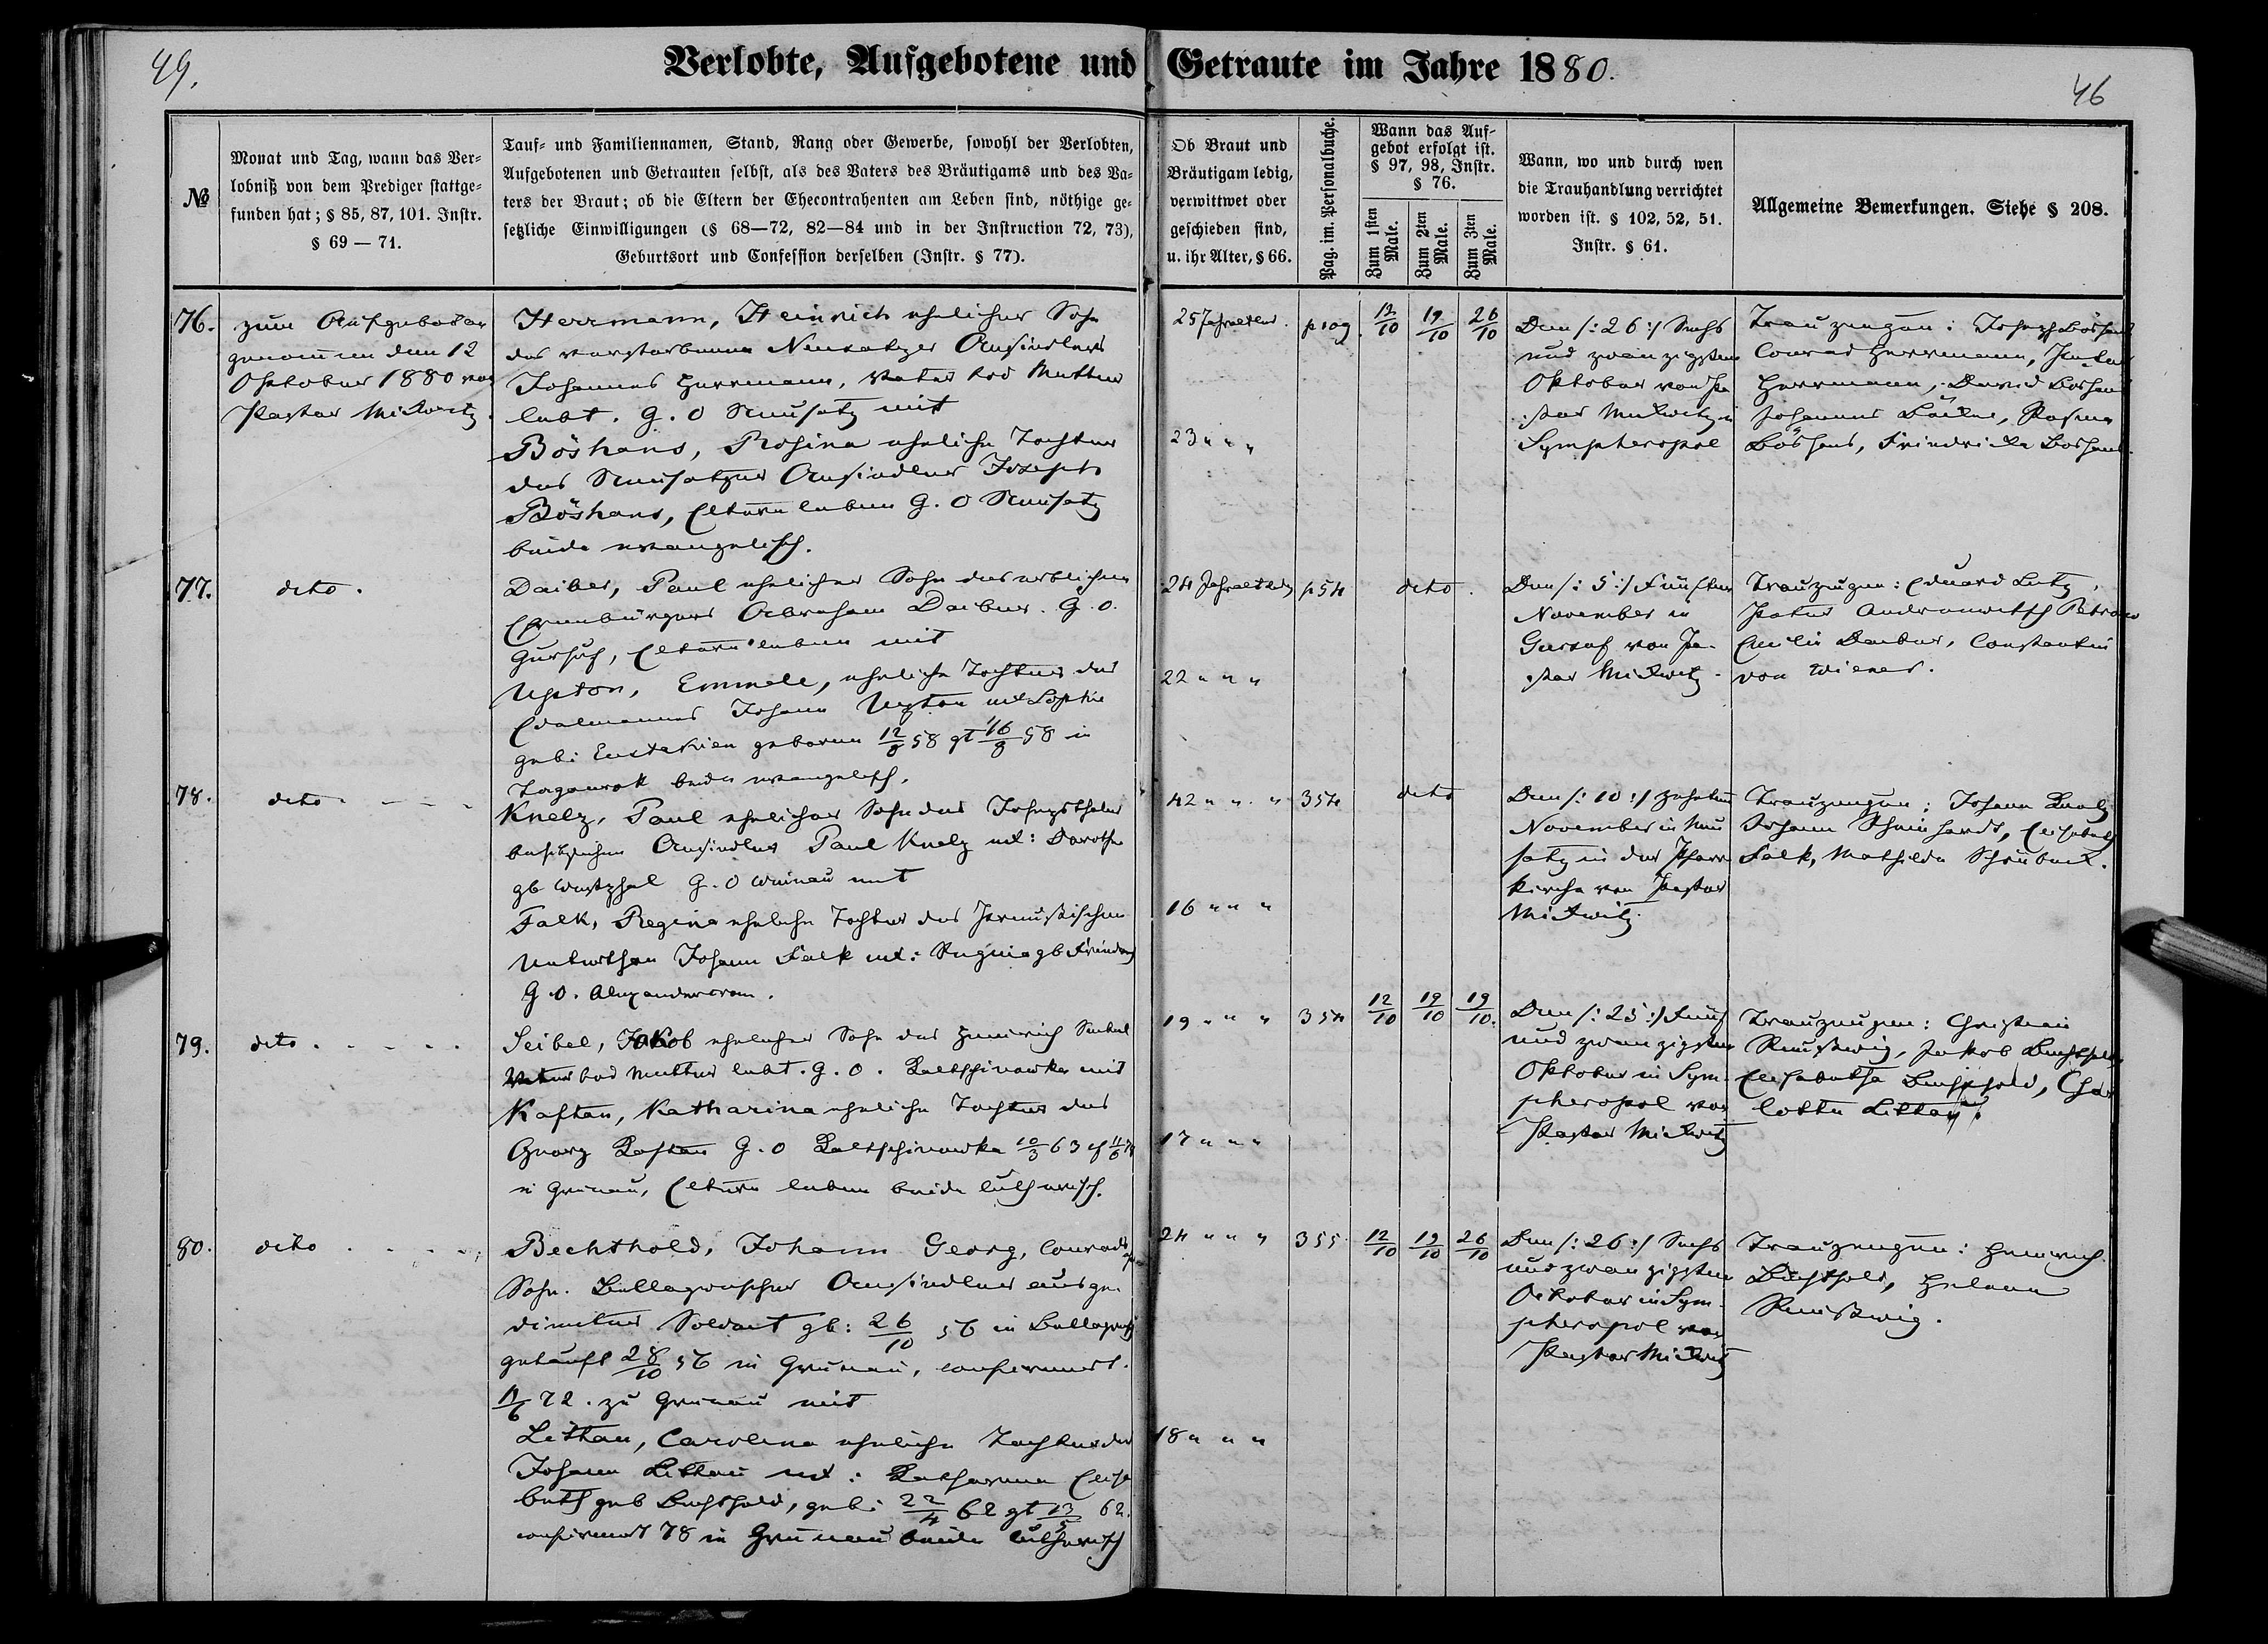 49.
Verlobte, Aufgebotene und Getraute im Jahre 1880.
46
№
Monat und Tag, wann das Ver-
lobniß von dem Prediger stattge-
funden hat; § 85, 87, 101. Instr.
§ 69 — 71.
Tauf- und Familiennamen, Stand, Rang oder Gewerbe, sowohl der Verlobten,
Aufgebotenen und Getrauten selbst, als des Vaters des Bräutigams und des Va-
ters der Braut; ob die Eltern der Ehecontrahenten am Leben sind, nöthige ge-
setzliche Einwilligungen (§ 68—72, 82—84 und in der Instruction 72, 73),
Geburtsort und Confession derselben (Instr. § 77).
Ob Braut und
Bräutigam ledig,
verwittwet oder
geschieden sind,
u. ihr Alter, § 66.
Pag. im. Personalbuche.
Wann das Auf-
gebot erfolgt ist.
§ 97, 98, Instr.
§ 76.
Zum 1sten Male.
Zum 2ten Male.
Zum 3ten Male.
Wann, wo und durch wen
die Trauhandlung verrichtet
worden ist. § 102, 52, 51.
Instr. § 61.
Allgemeine Bemerkungen. Siehe § 208.
76.
zum Aufgeboten
genommen den 12
Oktober 1880 von
Pastor Mickwitz.
Herrmann, Heinrich ehelicher Sohn
des verstorbenen Neusatzer Ansiedlers
Johannes Herrmann, Vater tod Mutter
lebt. G. O Neusatz mit
Böshans, Rosina eheliche Tochter
des Neusatzer Ansiedlers Joseph
Böshans, Eltern leben G. O Neusatz
beide evangelisch.
25 Jahr alt led.
23 " " "
12/10 19/10 26/10
Den /: 26 :/ Sechs
und zwanzigsten
Oktober von Pa
stor Mickwitz in
Sympheropol
Trauzeugen: Joseph Böshans
Conrad Herrmann,
Herrmann, David Boshans
Johannes
Böshans, Friedricke Boshans.
77.
dito.
Daiber, Paul ehelicher Sohn des erblichen
Ehrenbürgers Abraham Daiber. G. O.
Eltern leben mit
Upton, Emmele, eheliche Tochter des
Edelmannes Johann Upton mit Sophie
geb: geboren 12/8 58 gt 16/8 58 in
Taganrok beide evangelisch.
24 Jahr alt led
22 " " "
p54
dito.
Den /: 5 :/ Fünften
November in
von Pa-
stor Mickwitz.
Trauzeugen: Eduard Lutz,
Peter Andrewitsch Petrow
Emilie Daiber, Constantin
von Wiener.
78.
dito. - - -
Knelz, Paul ehelicher Sohn des Josephsthaler
Ansiedlers Paul Knelz mit: Dorothe
gb Westphal G. O Weinau mit
Falk, Regina eheliche Tochter des Preußischen
Unterthan Johann Falk mit: Regina gb
G. O.
42 " " "
16 " " "
354
dito
Den /: 10 :/ Zehnten
November in Neu
satz in der Pfarr
kirche von Pastor
Mickwitz.
Trauzeugen: Johann Knelz
Johann Elisabeth
Falk, Mathilde
79.
dito. - - - -
Seibel, Jakob ehelicher Sohn des Heinrich Seibel
Vater tod Mutter lebt. G. O. Kaltschinowka mit
Kaftan, Katharina eheliche Tochter des
Georg Kaftan G. O Kaltschinowka 10/3 63
in Grunau, Eltern leben beide lutherisch.
19 " " "
17 " " "
354
12/10 19/10 19/10.
Den /: 25 :/ Fünf
und zwanzigsten
Oktober in Sym-
pheropol von
Pastor Mickwitz
Trauzeugen: Christian
Jakob Bechthold,
Elisabetha Bechthold, Char
lotte Littau.
80.
dito - - - -
Bechthold, Johann Georg, Conrads
Sohn. Bellagwescher Ansiedler ausge-
dienter Soldat gb: 26/10 56 in
getauft 28/10 56 in Grunau, confirmirt.
72. zu Grunau mit
Littau, Carolina eheliche Tochter des
Johann Littau mit: Katharina Elisa
beth geb Bechthold, geb: 22/4 62 gt 13/5 62.
confirmirt 78 in Grunau beide lutherisch
24 " " "
18 " " "
355
12/10 19/10 26/10
Den /: 26 :/ Sechs
und zwanzigsten
Oktober in Sym-
pheropol von
Pastor Mickwitz
Trauzeugen: Heinrich
Bechthold, Helena